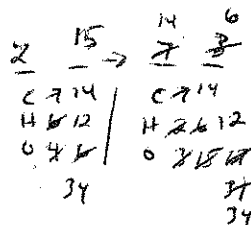 14 6
2 15 → 7 3
C 7 14 C 7 14
H 6 12 H 2 6 12
O 4 6 O 3 15 18
34 37
34